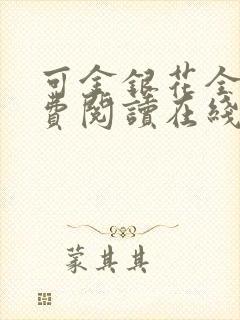 可金銀花全
費閱讀在綫
蒙其其